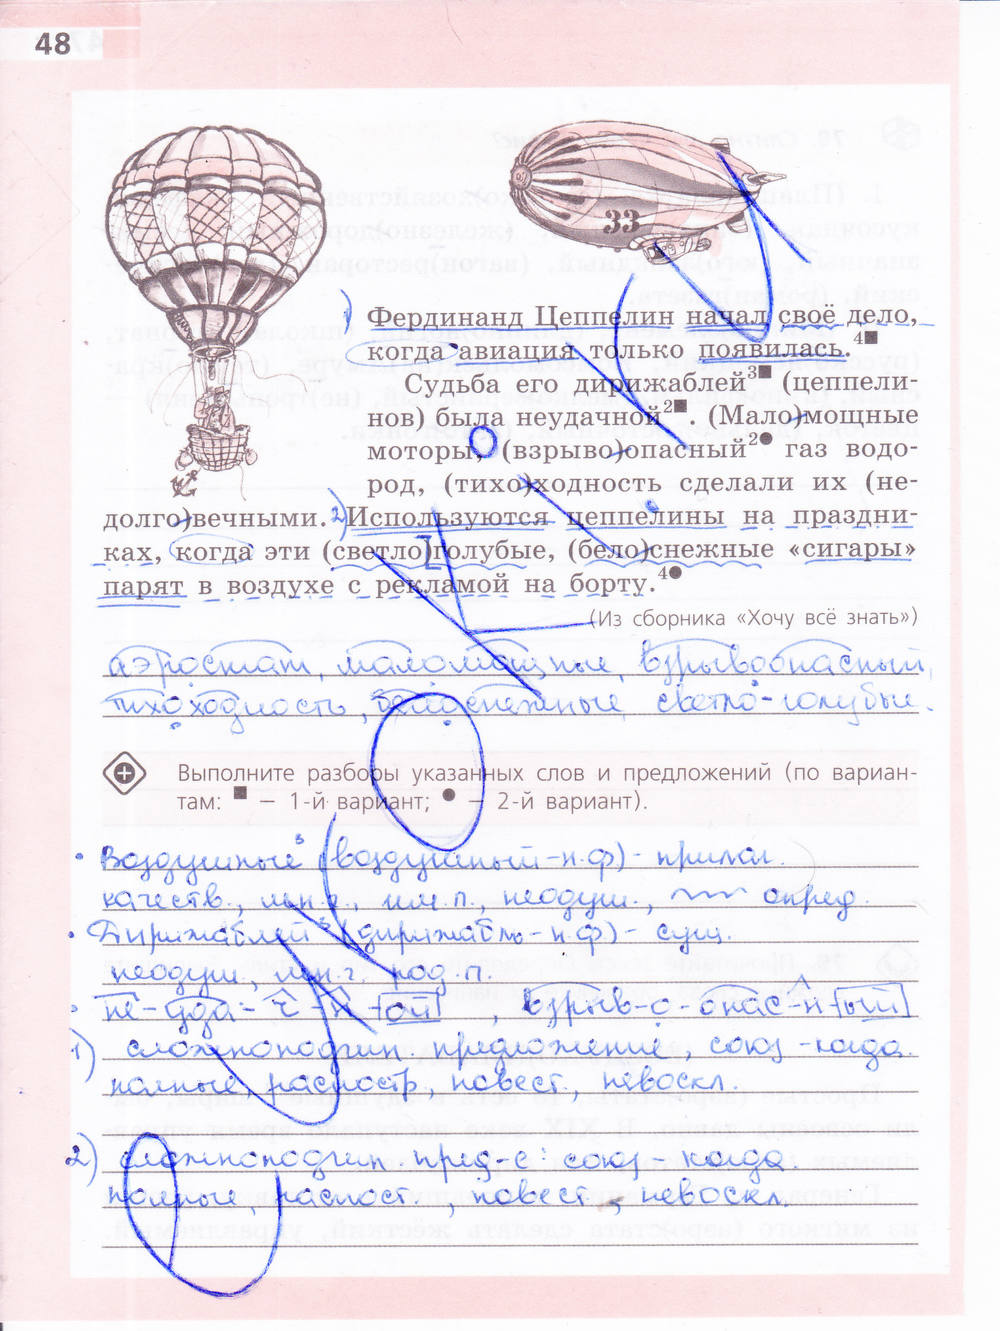 48
33
1) Фердинанд Цеппелин начал своё дело,
когда авиация только появилась.4■
Судьба его дирижаблей3■ (цеппели-
нов) была неудачной2■. (Мало)мощные
моторы, (взрыво)опасный2● газ водо-
род, (тихо)ходность сделали их (не-
долго)вечными. 2) Используются цеппелины на праздни-
ках, когда эти (светло)голубые, (бело)снежные «сигары»
парят в воздухе с рекламой на борту.4●
(Из сборника «Хочу всё знать»)
аэростат, маломощные, взрывоопасный,
тихоходность, белоснежные, светло-голубые.
Выполните разборы указанных слов и предложений (по вариан-
там: ■ – 1-й вариант; ● – 2-й вариант).
Воздушные3 (воздушный-н.ф)- прилаг.
качеств., мн.г., им.п., неодуш., опред.
Дирижаблей3 (дирижабль-н.ф)- сущ.
неодуш., мн.г, род.п.
не-уда-ч-н-ой, взрыв-о-опас-н-ый
1) сложноподчин. предложение, союз -когда.
полные, распостр., повест., невоскл.
2) сложноподчин. пред-е: союз когда
полные, распост., повест., невоскл.